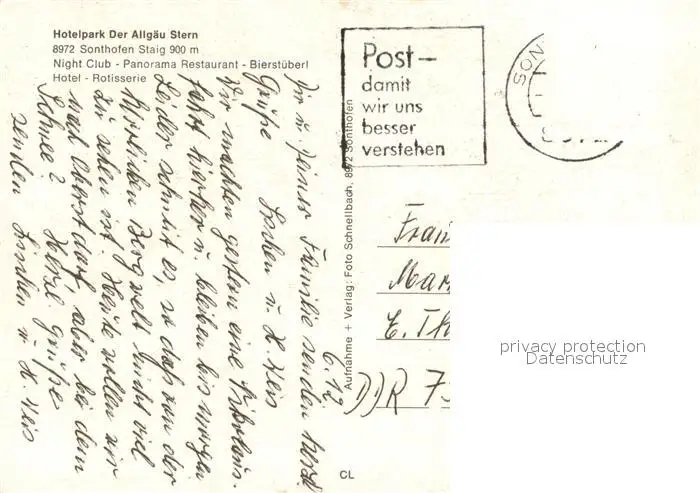 Hotelpark Der Allgäu Stern
8972 Sonthofen Staig 900 m
Night Club - Panorama Restaurant - Bierstüberl
Hotel - Rotisserie
Post-
damit
wir uns
besser
verstehen
SON
6.12
Dir u. Deiner Familie senden herzl.
Grüße
Wir machten gestern eine Nikolaus-
fahrt hierher u. bleiben bis morgen
Leider schneit es, so daß von der
herrlichen Bergwelt nicht viel
zu sehen ist. Heute wollen wir
nach Oberstdorf, aber bei dem
Schnee? Herzl. Grüße
senden u. H.
Aufnahme + Verlag: Foto Schnellbach, 8972 Sonthofen
Frau
Mar
E. Th
DDR 75
CL
privacy protection
Datenschutz